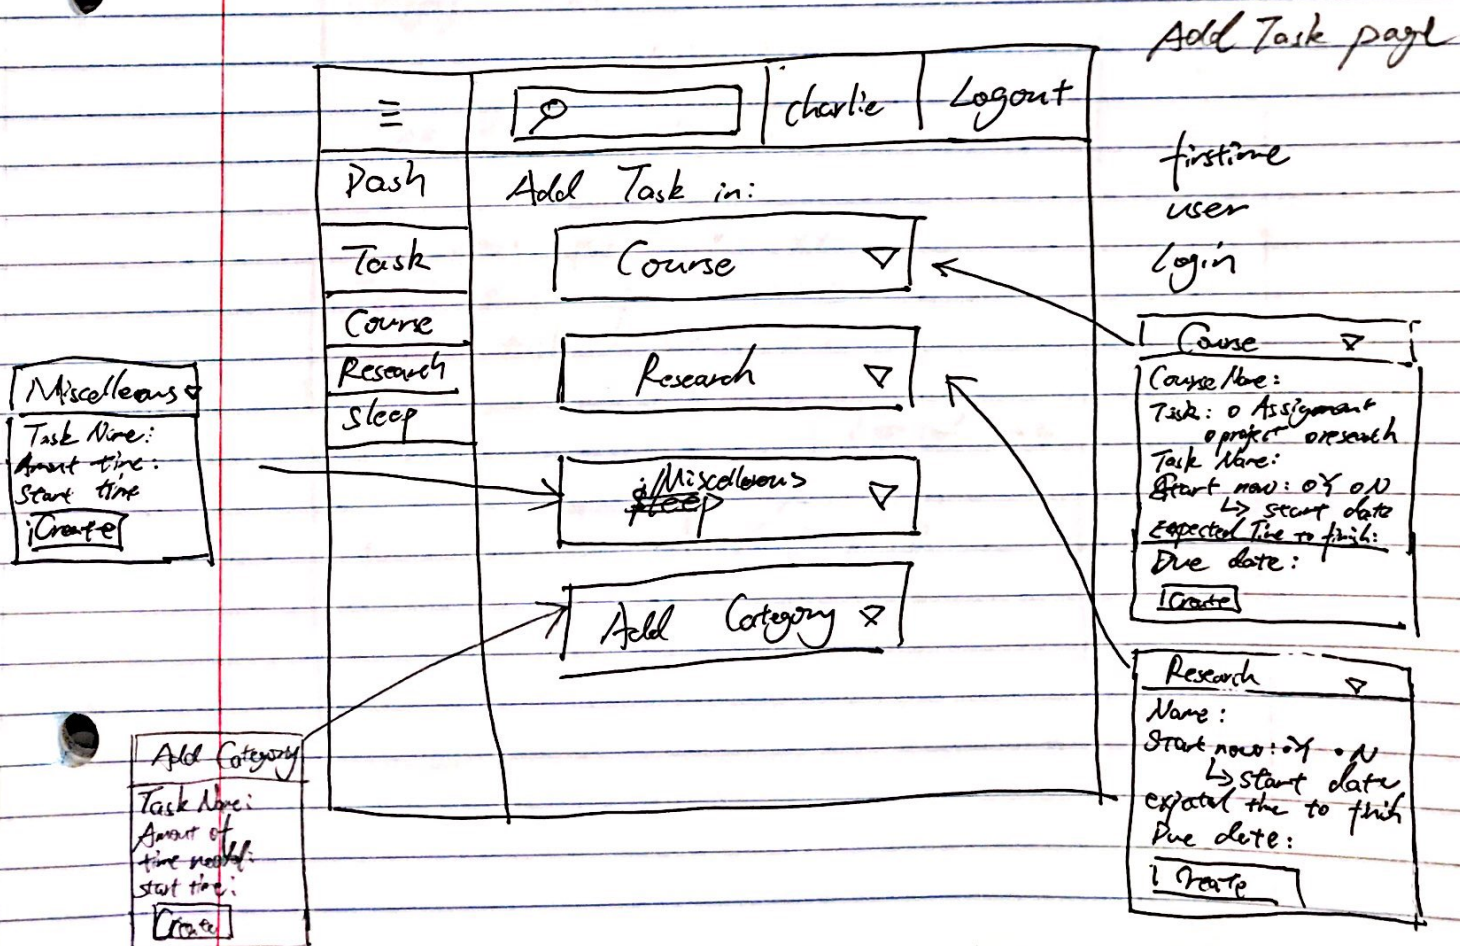 Add Task page
charlie
Logout
Dash
Add Task in:
Task
Course
Research
Sleep
Course
Research
Miscelleous
sleep
Add Category
firstime
user
login
Miscelleous
Task Name:
Amount time:
Start time
Create
Add Category
Task Name:
Amount of
time needed:
start time:
Create
Course
Course Name:
Task: o Assignment
o project o research
Task Name:
Start now: o Y o N
↳ start date
Expected Time to finish:
Due date:
Create
Research
Name:
Start now: o Y o N
↳ start date
expected time to finish
Due date:
Create